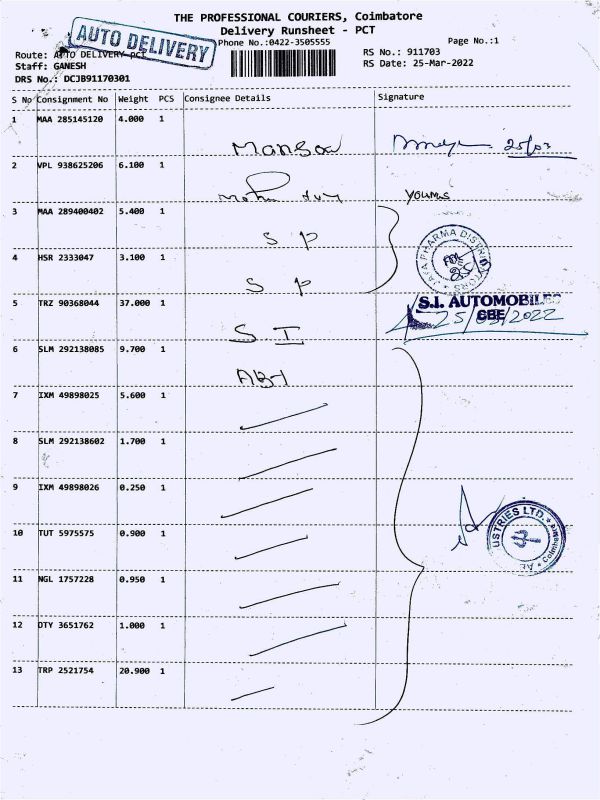 THE PROFESSIONAL COURIERS, Coimbatore
Delivery Runsheet - PCT
AUTO DELIVERY
Phone No.:0422-3505555
Page No.:1
Route: AUTO DELIVERY PCT
RS No.: 911703
Staff: GANESH
RS Date: 25-Mar-2022
DRS No.: DCJB91170301
S No Consignment No Weight PCS Consignee Details Signature
1 MAA 285145120 4.000 1
Mansoor 25/03
2 VPL 938625206 6.100 1
Younus
3 MAA 289400402 5.400 1
S P
JAYA PHARMA DISTRIBUTORS
4 HSR 2333047 3.100 1
S P
5 TRZ 90368044 37.000 1
S.I. AUTOMOBILES
CBE
25/03/2022
S. I
6 SLM 292138085 9.700 1
ABI
7 IXM 49898025 5.600 1
8 SLM 292138602 1.700 1
9 IXM 49898026 0.250 1
USTRIES LTD. * Coimbatore
10 TUT 5975575 0.900 1
11 NGL 1757228 0.950 1
12 OTY 3651762 1.000 1
13 TRP 2521754 20.900 1